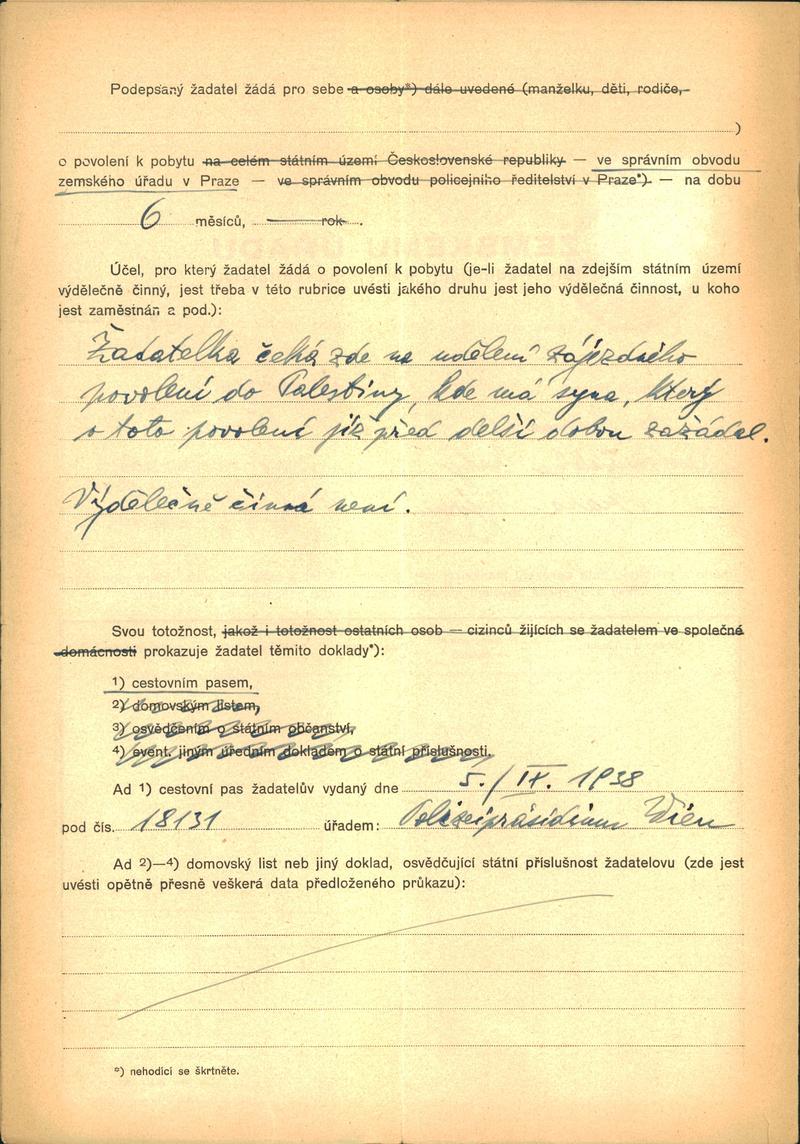 Podepsaný žadatel žádá pro sebe a osoby*) dále uvedené (manželku, děti, rodiče,
)
o povolení k pobytu na celém státním území Československé republiky — ve správním obvodu
zemského úřadu v Praze — ve správním obvodu policejního ředitelství v Praze*) — na dobu
6 měsíců, rok .
Účel, pro který žadatel žádá o povolení k pobytu (je-li žadatel na zdejším státním území
výdělečně činný, jest třeba v této rubrice uvésti jakého druhu jest jeho výdělečná činnost, u koho
jest zaměstnán a pod.):
Žadatelka čeká zde na udělení zájezdného
povolení do Palestiny, kde má syna, který
o toto povolení již před delší dobou zažádal.
Výdělečně činná není.
Svou totožnost, jakož i totožnost ostatních osob — cizinců žijících se žadatelem ve společné
domácnosti prokazuje žadatel těmito doklady*):
1) cestovním pasem,
2) domovským listem,
3) osvědčením o státním občanství,
4) event. jiným úředním dokladem o státní příslušnosti.
Ad 1) cestovní pas žadatelův vydaný dne 5./IX. 1938
pod čís. 18131 úřadem: Polizeipräsidium Wien
Ad 2)—4) domovský list neb jiný doklad, osvědčující státní příslušnost žadatelovu (zde jest
uvésti opětně přesně veškerá data předloženého průkazu):
*) nehodící se škrtněte.